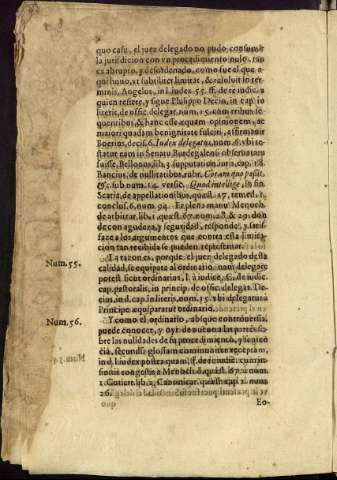 quo casu, el juez delegado no pudo consumir
la jurisdicion con vn procedimiento nulo, tan
ex abrupto, y desordenado, como fue el que a-
qui huuo, vt subtiliter limitat, & resoluit in ter-
minis, Angelus, in l. Iudex 55. ff. de re iudic. a
quien refiere, y sigue Philippo Decio, in cap. in
literis, de offic. delegat. num. 15. cum tribus se-
quentibus, & hanc esse æquam opinionem, ac
maiori quadam benignitate fulciri, affirmauit
Boerius, decis. 6. Iudex delegatus, num. 8. vbi te-
statur eam in Senatu Burdegalensi obseruatam
fuisse, Bellonus, lib. 3. supputation. iuris, cap. 18.
Bancius, de nullitatibus, rubr.
&c. sub num. 14. versic. Quod intellige,
Scacia, de appellationibus, quæst. 17. remed. 1.
conclus. 6. num. 94. Et plena manu Menoch.
de arbitrar. lib. 1. quæst. 67. num. 28. & 29. don
de con agudeza, y seguridad, responde, y satis-
face a los argumentos que contra esta limitacion
tan recibida se pueden representar.
Num. 55.
La razon es, porque, el juez delegado desta
calidad, se equipara al ordinario, nam delegare
potest sicut ordinarius, l. à iudice, C. de iudic.
cap. pastoralis, in princip. de offic. delegat. De-
cius, in d. cap. in literis, num. 15. vbi delegatus à
Principe æquiparatur ordinario.
Num. 56.
Y como el ordinario, absque controuersia,
puede conocer, y oyr de nueuo a las partes so-
bre las nulidades de su procedimiento, y senten-
cia, secundùm glossam communiter receptam,
in d. l. iudex posteaquam, ff. de re iudic. cum in-
finitis congestis à Menoch. d. quæst. 67. à num.
1. Gutierr. lib. 2. Canonicar. quæst. cap. 12. num.
26.
Eo-